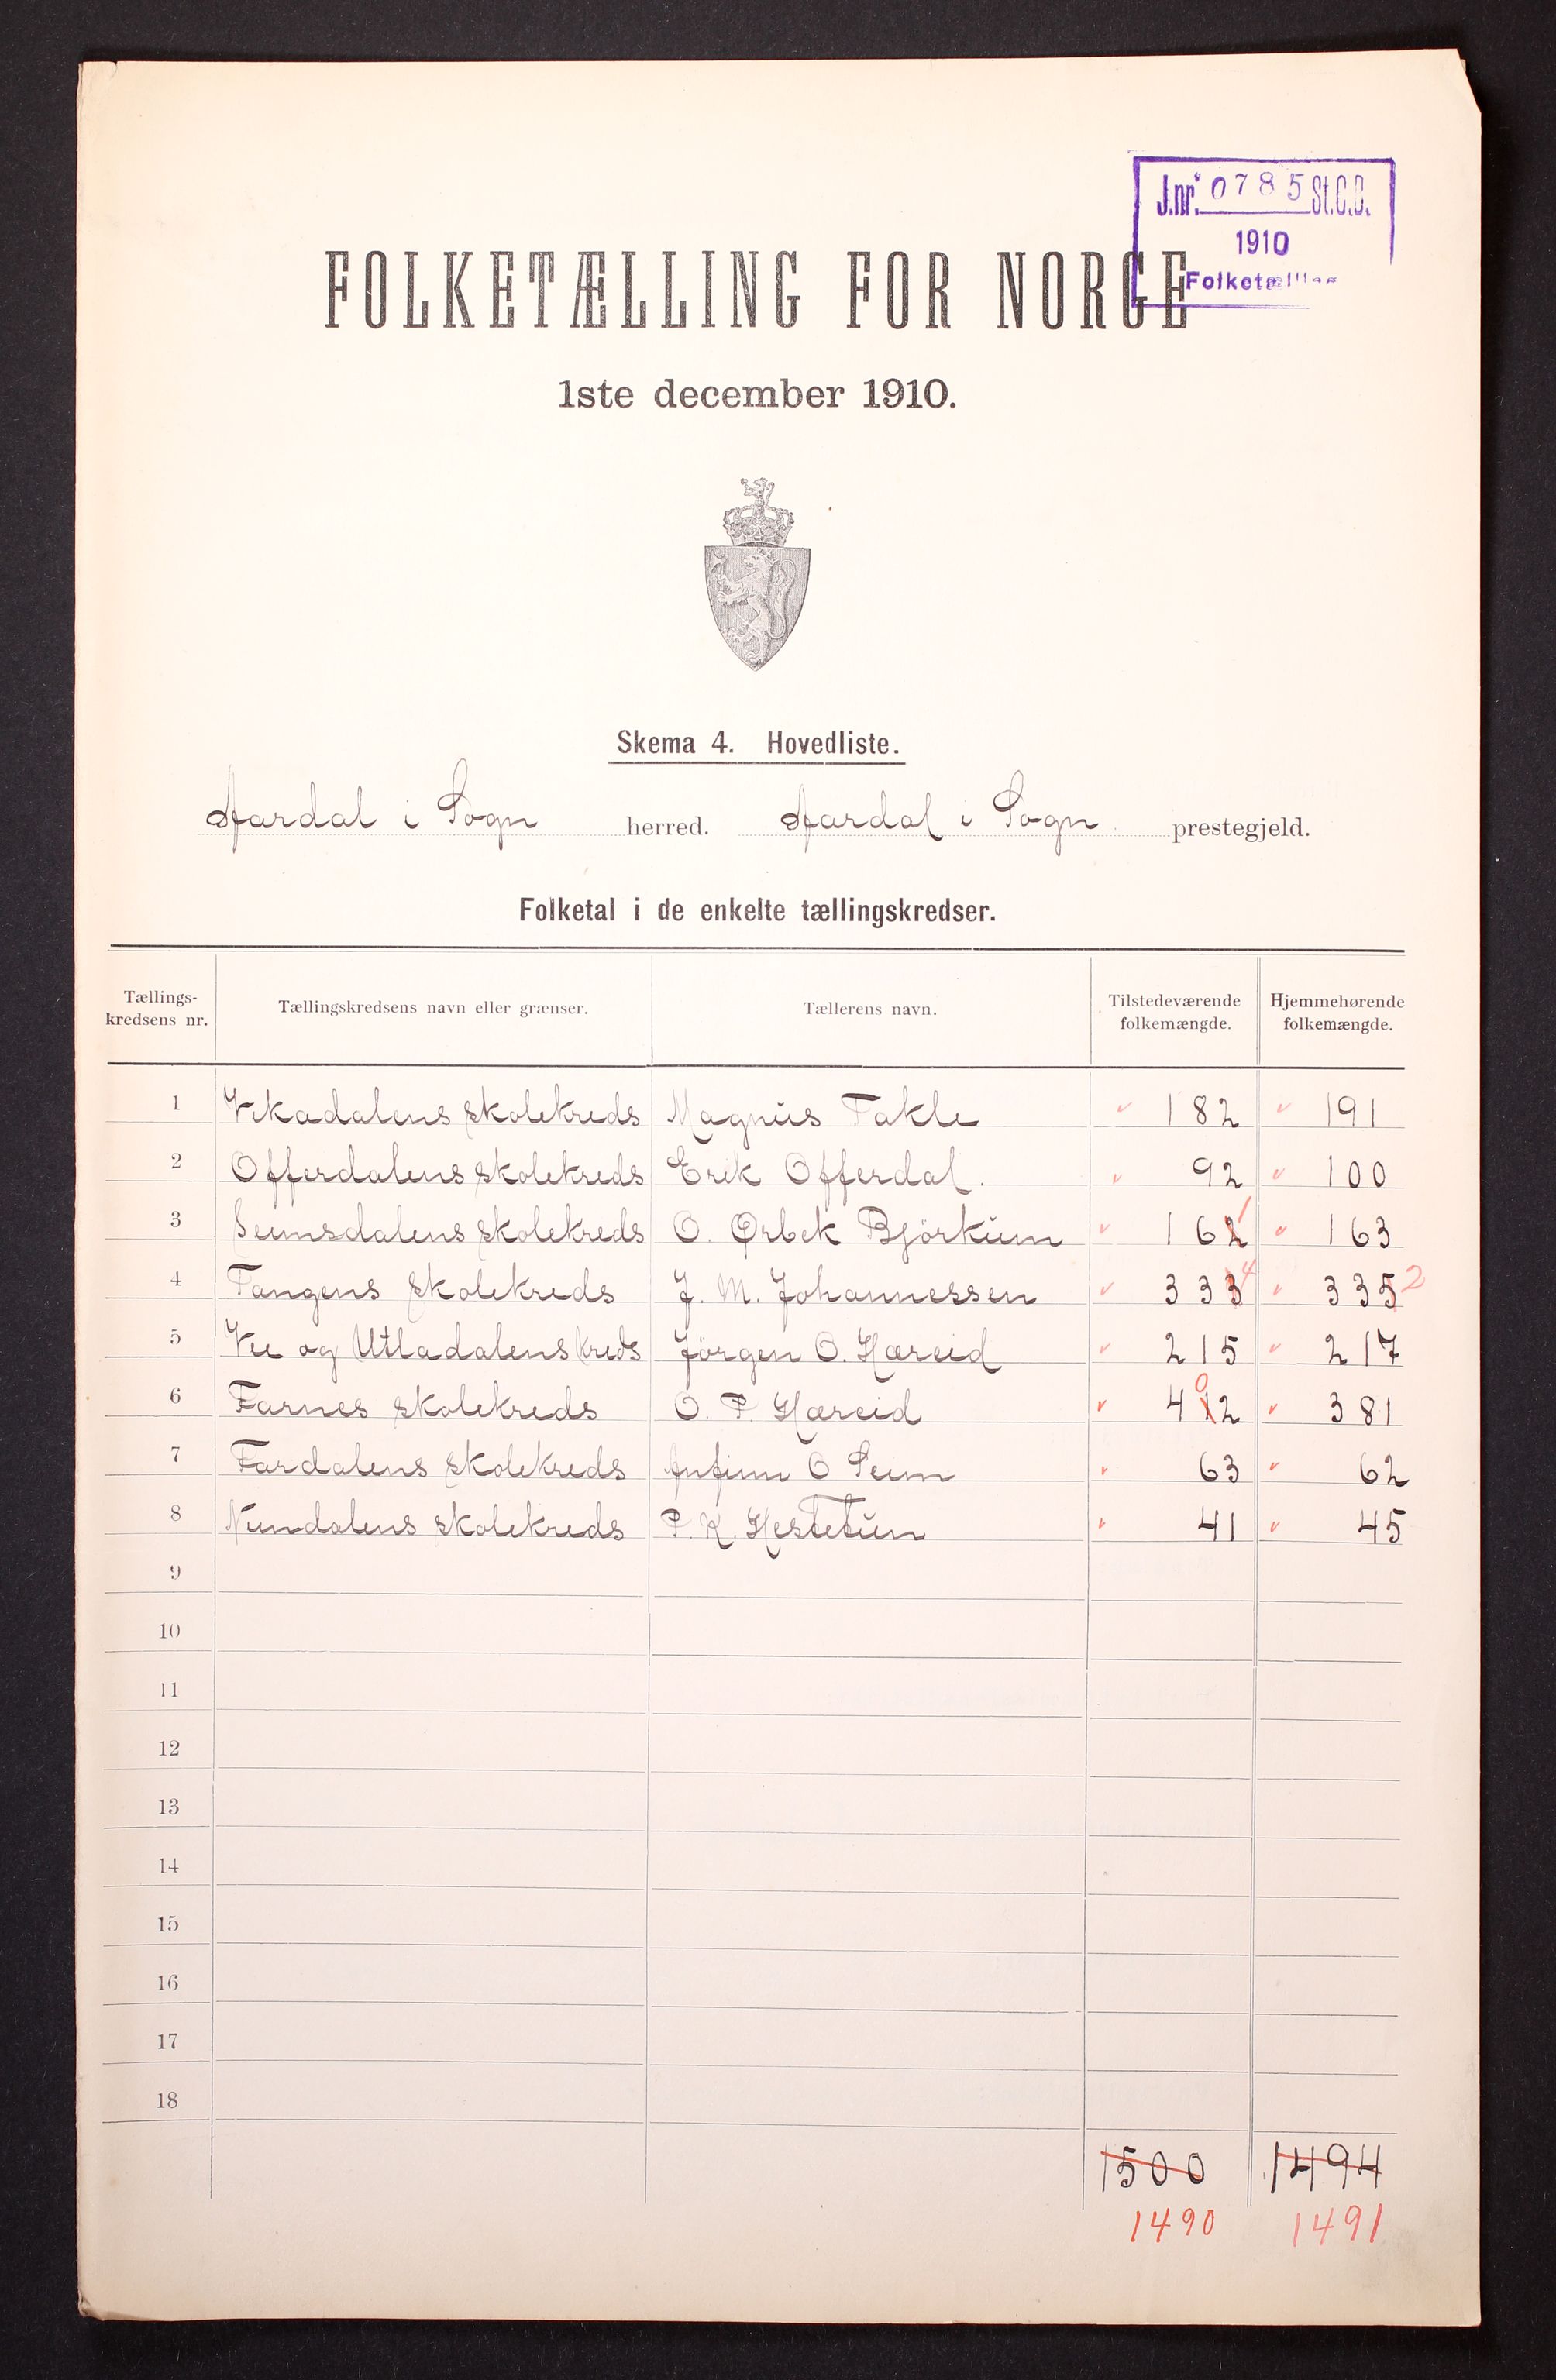 J.nr. 0785 St.C.B.
1910
Folketælling
FOLKETÆLLING FOR NORGE
1ste december 1910.
Skema 4. Hovedliste.
Aardal i Sogn herred. Aardal i Sogn prestegjeld.
Folketal i de enkelte tællingskredser.
Tællings-kredsens nr. Tællingskredsens navn eller grænser. Tællerens navn. Tilstedeværende folkemængde. Hjemmehørende folkemængde.
1 Vikadalens skolekreds Magnus Takle 182 191
2 Offerdalens skolekreds Erik Offerdal. 92 100
3 Seimsdalens skolekreds O. Ørbek Björkum 162 1 163
4 Tangens skolekreds J. M. Johannessen 333 4 335 2
5 Vee og Utladalens kreds Jörgen O. Hæreid 215 217
6 Farnes skolekreds O. P. Hæreid 412 0 381
7 Fardalens skolekreds Anfinn O Seim 63 62
8 Nundalens skolekreds P. K. Hestetun 41 45
9
10
11
12
13
14
15
16
17
18
1500 1494
1490 1491